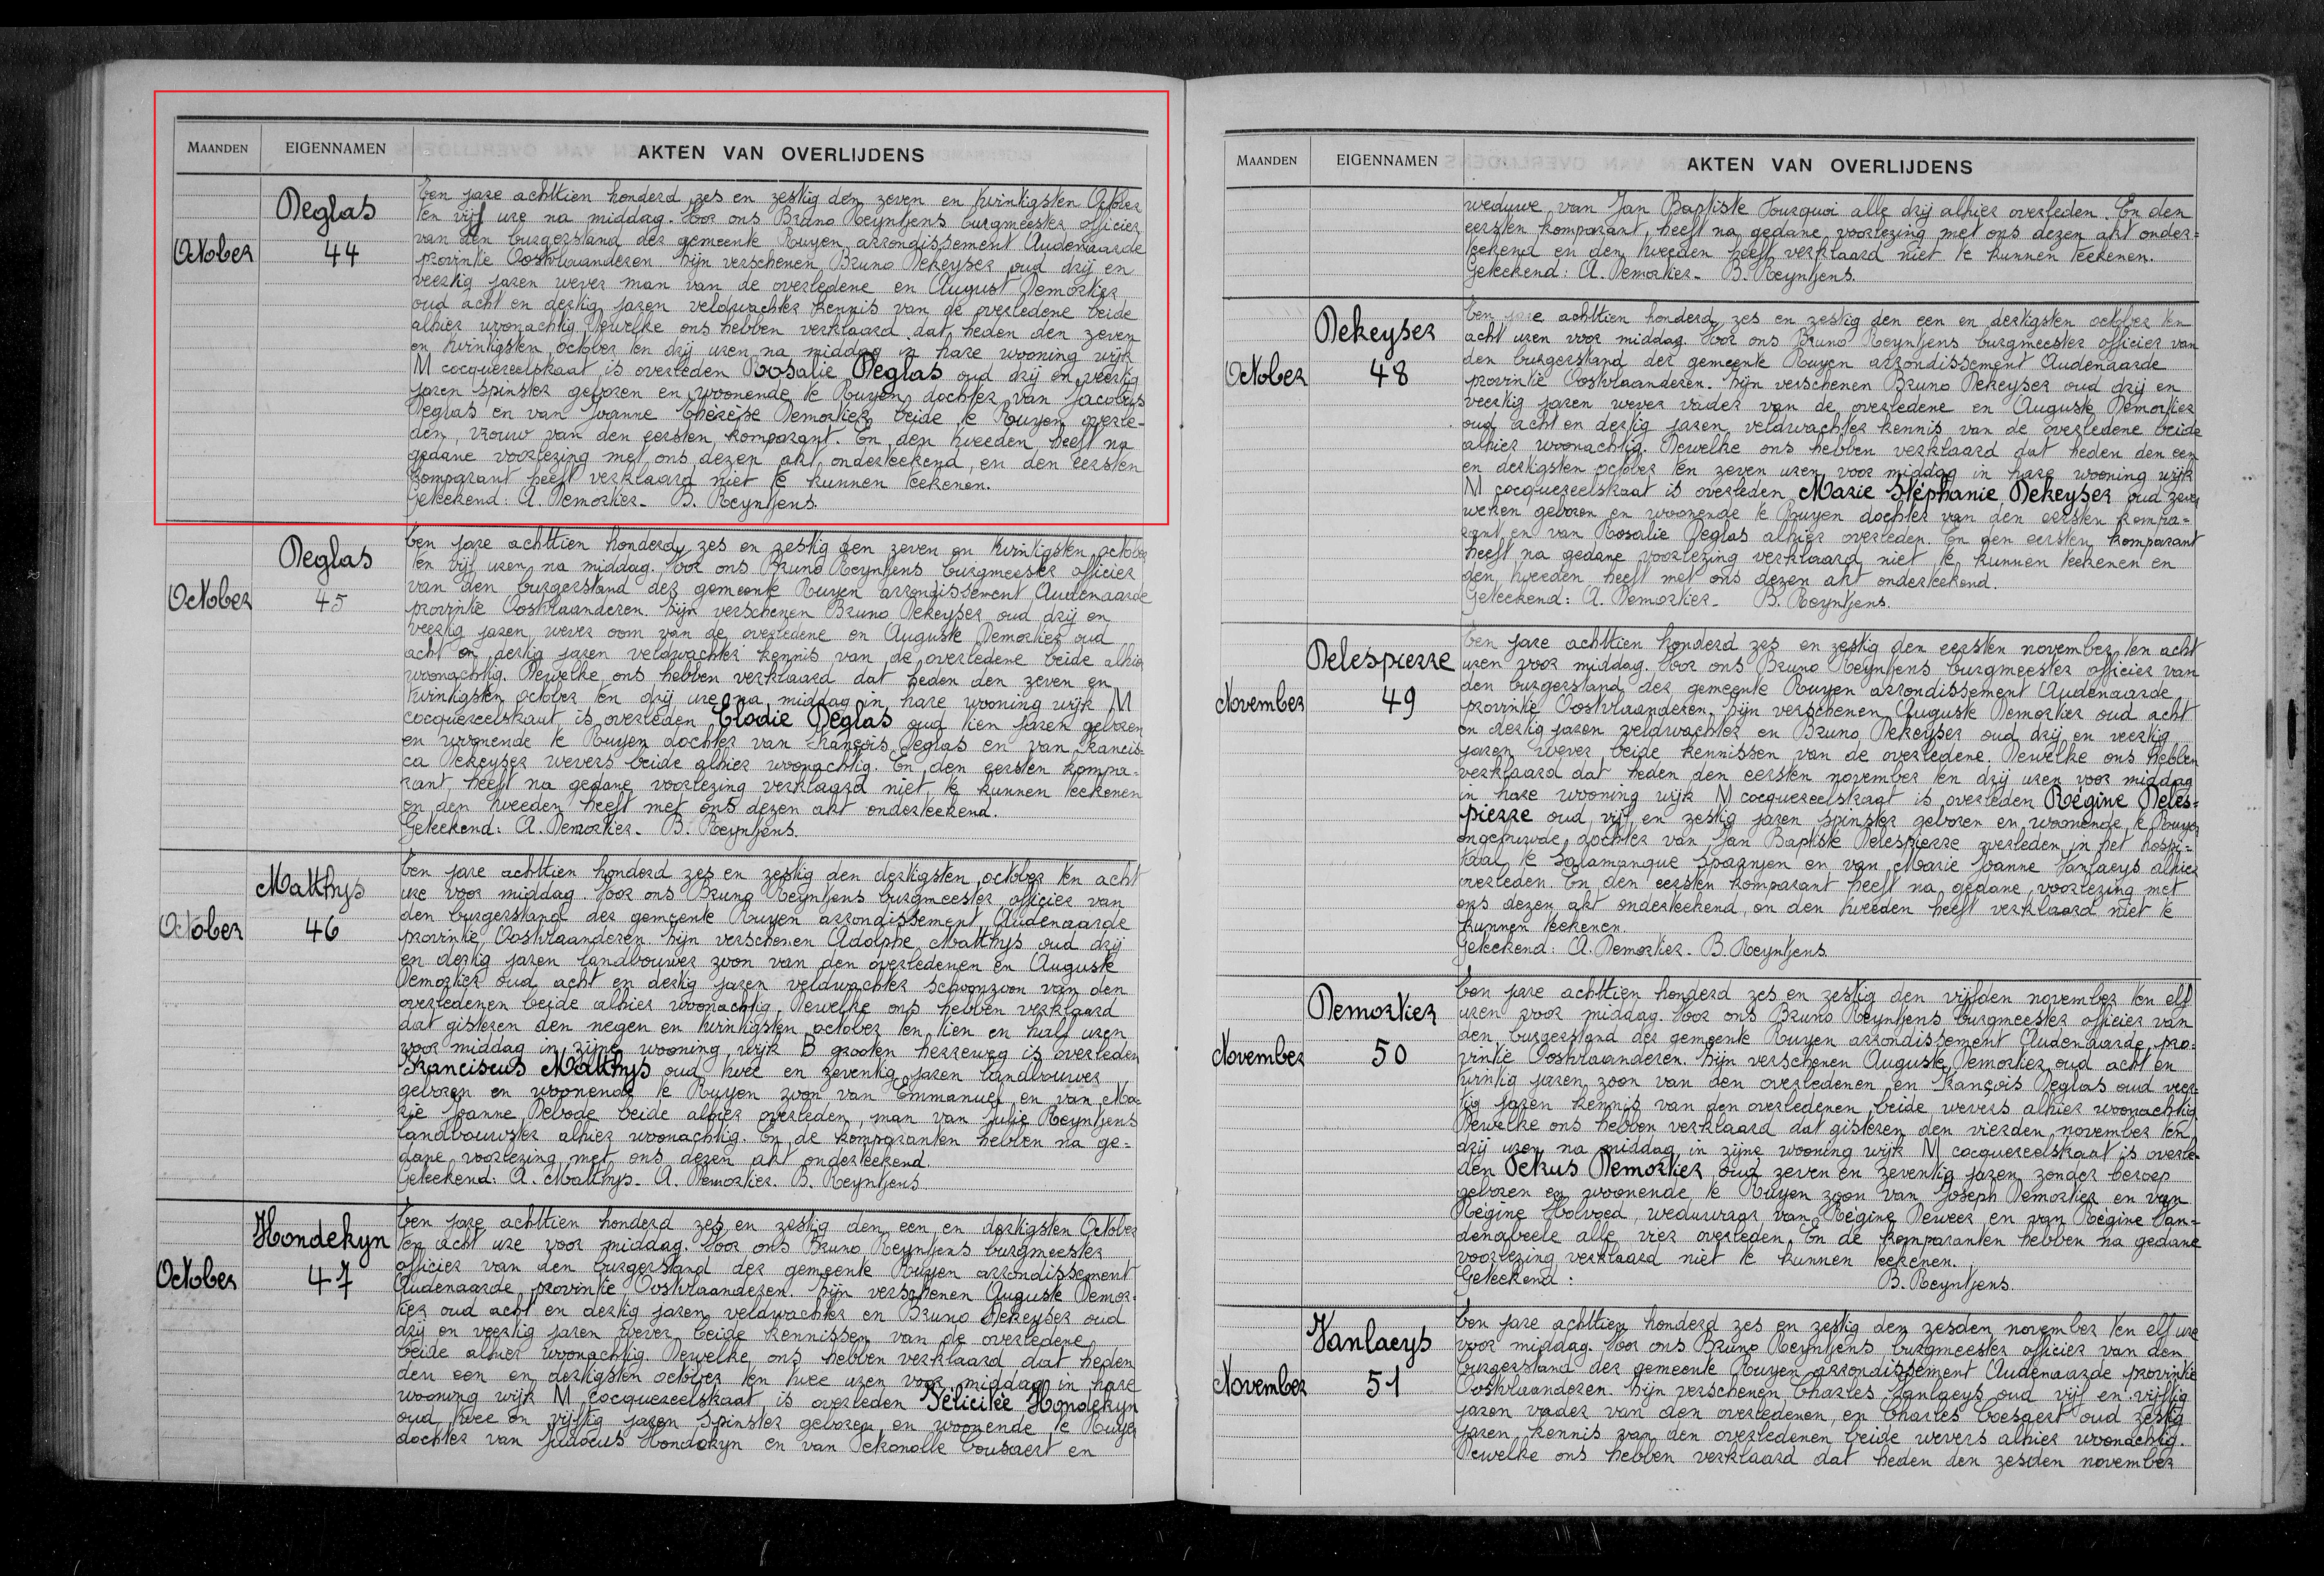 MAANDEN EIGENNAMEN AKTEN VAN OVERLIJDENS
Deglas
October 44
Ten jare achttien honderd zes en zestig den zeven en twintigsten October
ten vijf ure na middag. Voor ons Bruno Reyntjens burgmeester officier
van den burgerstand der gemeente Ruyen arrondissement Audenaarde
provintie Oostvlaanderen. Zijn verschenen Bruno Dekeyser oud drij en
veertig jaren wever man van de overledene en August Demortier
oud acht en dertig jaren veldwachter kennis van de overledene beide
alhier woonachtig. Dewelke ons hebben verklaard dat heden den zeven
en twintigsten october ten drij uren na middag in hare wooning wijk
M cocquereelstraat is overleden Rosalie Deglas oud drij en veertig
jaren spinster geboren en woonende te Ruyen dochter van Jacobus
Deglas en van Joanne Thérèse Demortier beide te Ruyen overle-
den, vrouw van den eersten komparant. En den tweeden heeft na
gedane voorlezing met ons dezen akt onderteekend, en den eersten
komparant heeft verklaard niet te kunnen teekenen.
Geteekend: A. Demortier. B. Reyntjens.
Deglas
October 45
Ten jare achttien honderd zes en zestig den zeven en twintigsten october
ten vijf uren na middag. Voor ons Bruno Reyntjens burgmeester officier
van den burgerstand der gemeente Ruyen arrondissement Audenaarde
provintie Oostvlaanderen. Zijn verschenen Bruno Dekeyser oud drij en
veertig jaren wever oom van de overledene en Auguste Demortier oud
acht en dertig jaren veldwachter kennis van de overledene beide alhier
woonachtig. Dewelke ons hebben verklaard dat heden den zeven en
twintigsten october ten drij ure na middag in hare wooning wijk M
cocquereelstraat is overleden Elodie Deglas oud tien jaren geboren
en woonende te Ruyen dochter van François Deglas en van Francis-
ca Dekeyser wevers beide alhier woonachtig. En den eersten kompa-
rant heeft na gedane voorlezing verklaard niet te kunnen teekenen
en den tweeden heeft met ons dezen akt onderteekend.
Geteekend: A. Demortier. B. Reyntjens.
Matthys
October 46
Ten jare achttien honderd zes en zestig den dertigsten october ten acht
ure voor middag. Voor ons Bruno Reyntjens burgmeester officier van
den burgerstand der gemeente Ruyen arrondissement Audenaarde
provintie Oostvlaanderen. Zijn verschenen Adolphe Matthys oud drij
en dertig jaren landbouwer zoon van den overledenen en Auguste
Demortier oud acht en dertig jaren veldwachter schoonzoon van den
overledenen beide alhier woonachtig. Dewelke ons hebben verklaard
dat gisteren den negen en twintigsten october ten tien en half uren
voor middag in zijne wooning wijk B grooten herreweg is overleden
Franciscus Matthys oud twee en zeventig jaren landbouwer
geboren en woonende te Ruyen zoon van Emmanuel en van Ma-
rie Joanne Debode beide alhier overleden, man van Julie Reyntjens
landbouwster alhier woonachtig. En de komparanten hebben na ge-
dane voorlezing met ons dezen akt onderteekend.
Geteekend: A. Matthys. A. Demortier. B. Reyntjens
Hondekyn
October 47
Ten jare achttien honderd zes en zestig den een en dertigsten October
ten acht ure voor middag. Voor ons Bruno Reyntjens burgmeester
officier van den burgerstand der gemeente Ruyen arrondissement
Audenaarde provintie Oostvlaanderen. Zijn verschenen Auguste Demor-
tier oud acht en dertig jaren veldwachter en Bruno Dekeyser oud
drij en veertig jaren wever beide kennissen van de overledene
beide alhier woonachtig. Dewelke ons hebben verklaard dat heden
den een en dertigsten october ten twee uren voor middag in hare
wooning wijk M cocquereelstraat is overleden Félicitée Hondekyn
oud twee en vijftig jaren spinster geboren en woonende te Ruyen
dochter van Judocus Hondekyn en van Petronolle Cousaert en
MAANDEN EIGENNAMEN AKTEN VAN OVERLIJDENS
weduwe van Jan Baptiste Fourquoi alle drij alhier overleden. En den
eersten komparant, heeft na gedane voorlezing met ons dezen akt onder-
teekend en den tweeden heeft verklaard niet te kunnen teekenen.
Geteekend: A. Demortier. B. Reyntjens.
Dekeyser
October 48
Ten jare achttien honderd zes en zestig den een en dertigsten october ten
acht uren voor middag. Voor ons Bruno Reyntjens burgmeester officier van
den burgerstand der gemeente Ruyen arrondissement Audenaarde
provintie Oostvlaanderen. Zijn verschenen Bruno Dekeyser oud drij en
veertig jaren wever vader van de overledene en Auguste Demortier
oud acht en dertig jaren veldwachter kennis van de overledene beide
alhier woonachtig. Dewelke ons hebben verklaard dat heden den een
en dertigsten october ten zeven uren voor middag in hare wooning wijk
M cocquereelstraat is overleden Marie Stéphanie Dekeyser oud zeven
weken geboren en woonende te Ruyen dochter van den eersten kompa-
rant en van Rosalie Deglas alhier overleden. En den eersten komparant
heeft na gedane voorlezing verklaard niet te kunnen teekenen en
den tweeden heeft met ons dezen akt onderteekend.
Geteekend: A. Demortier. B. Reyntjens.
Delespierre
November 49
Ten jare achttien honderd zes en zestig den eersten november ten acht
uren voor middag. Voor ons Bruno Reyntjens burgmeester officier van
den burgerstand der gemeente Ruyen arrondissement Audenaarde
provintie Oostvlaanderen. Zijn verschenen Auguste Demortier oud acht
en dertig jaren veldwachter en Bruno Dekeyser oud drij en veertig
jaren wever beide kennissen van de overledene. Dewelke ons hebben
verklaard dat heden den eersten november ten drij uren voor middag
in hare wooning wijk M cocquereelstraat is overleden Régine Deles-
pierre oud vijf en zestig jaren spinster geboren en woonende te Ruyen
ongehuwde dochter van Jan Baptiste Delespierre overleden in het hospi-
taal te Salamanque Spagnen en van Marie Joanne Vanlaeys alhier
overleden. En den eersten komparant heeft na gedane voorlezing met
ons dezen akt onderteekend, en den tweeden heeft verklaard niet te
kunnen teekenen.
Geteekend: A. Demortier. B. Reyntjens
Demortier
November 50
Ten jare achttien honderd zes en zestig den vijfden november ten elf
uren voor middag. Voor ons Bruno Reyntjens burgmeester officier van
den burgerstand der gemeente Ruyen arrondissement Audenaarde pro-
vintie Oostvlaanderen. Zijn verschenen Auguste Demortier oud acht en
twintig jaren zoon van den overledenen en François Deglas oud veer-
tig jaren kennis van den overledenen beide wevers alhier woonachtig
Dewelke ons hebben verklaard dat gisteren den vierden november ten
drij uren na middag in zijne wooning wijk M cocquereelstraat is overle-
den Petrus Demortier oud zeven en zeventig jaren zonder beroep
geboren en woonende te Ruyen zoon van Joseph Demortier en van
Régine Holvoed, weduwaar van Régine Deweer en van Régine Van-
denabeele alle vier overleden. En de komparanten hebben na gedane
voorlezing verklaard niet te kunnen teekenen.
Geteekend: B. Reyntjens.
Vanlaeys
November 51
Ten jare achttien honderd zes en zestig den zesden november ten elf ure
voor middag. Voor ons Bruno Reyntjens burgmeester officier van den
burgerstand der gemeente Ruyen arrondissement Audenaarde provintie
Oostvlaanderen. Zijn verschenen Charles Vanlaeys oud vijf en vijftig
jaren vader van den overledenen, en Charles Coesaert oud zestig
jaren kennis van den overledenen beide wevers alhier woonachtig.
Dewelke ons hebben verklaard dat heden den zesden november